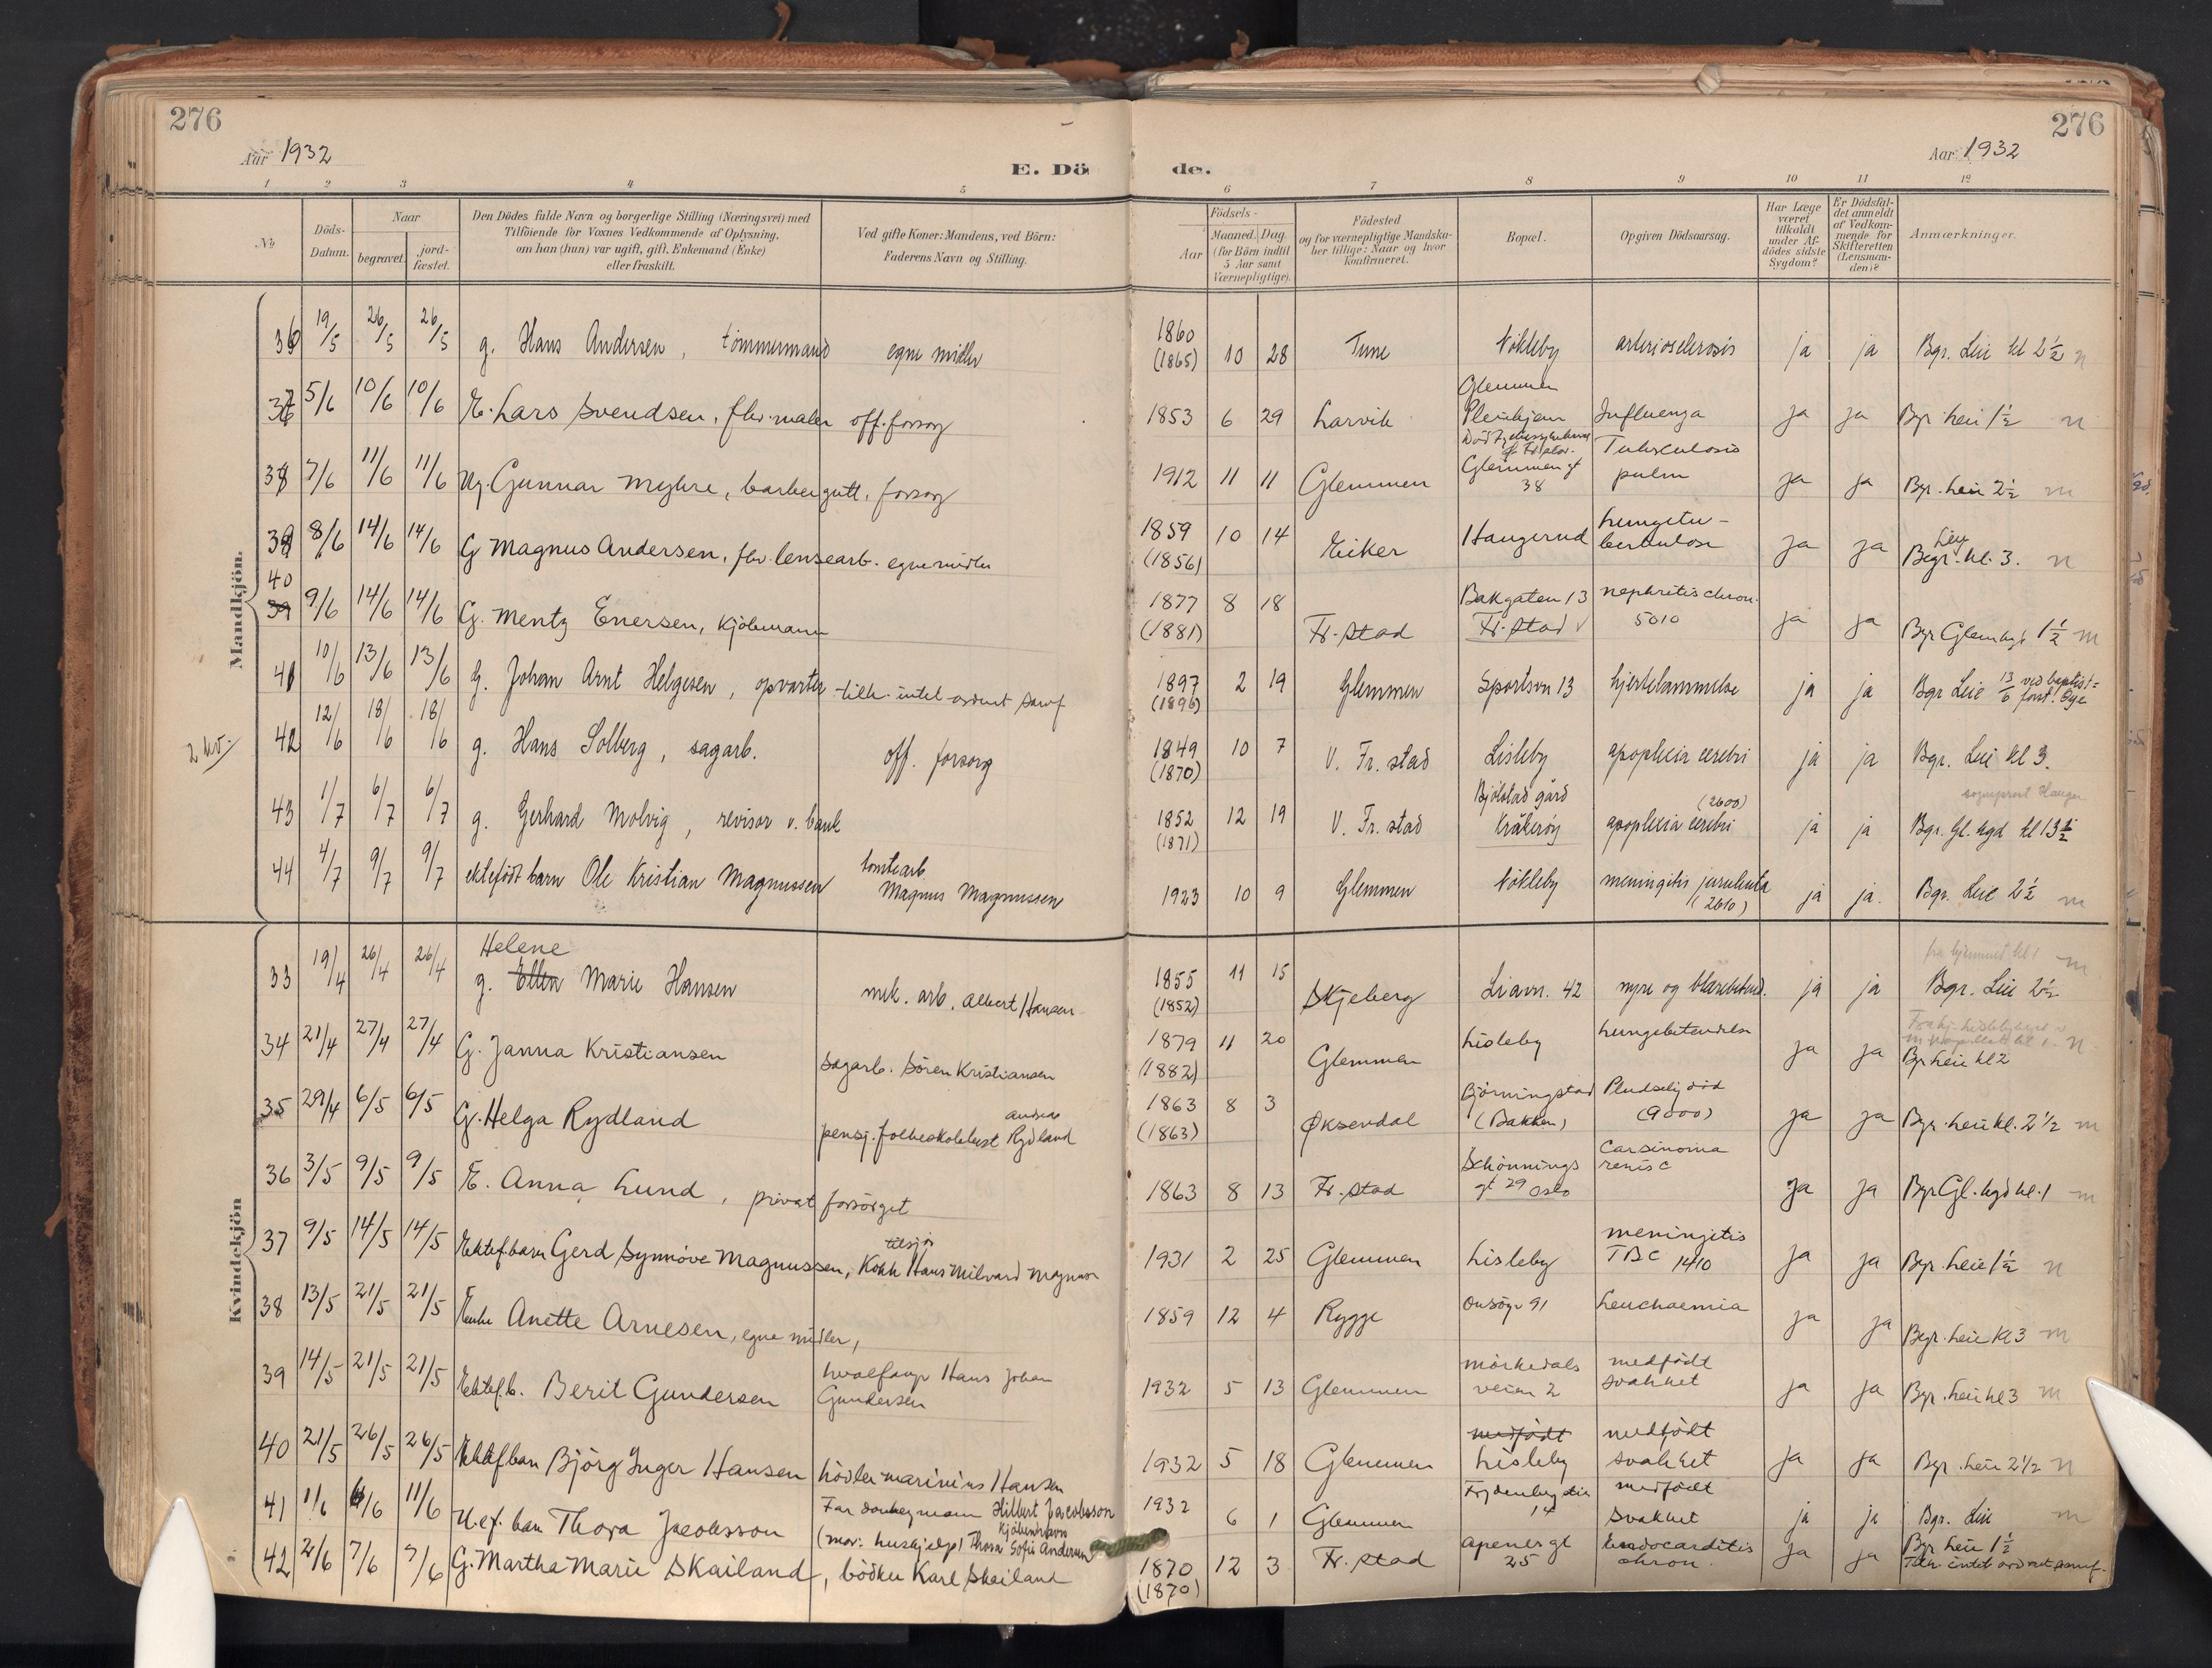 276
276
Aar 1932
Aar 1932
E. Dö
de.
1 2 3 4 5 6 7 8 9 10 11 12
No
Döds-
Datum.
Naar
begravet.
jord-
fæstet.
Den Dödes fulde Navn og borgerlige Stilling (Næringsvei) med
Tilföiende for Voxnes Vedkommende af Oplysning,
om han (hun) var ugift, gift, Enkemand (Enke)
eller fraskilt.
Ved gifte Koner: Mandens, ved Börn:
Faderens Navn og Stilling.
Födsels-
Aar
Maaned.
Dag.
(for Börn indtil
5 Aar samt
Værnepligtige).
Födested
og for værnepligtige Mandska-
ber tillige: Naar og hvor
konfirmeret.
Bopæl.
Opgiven Dödsaarsag.
Har Læge
været
tilkaldt
under Af-
dödes sidste
Sygdom?
Er Dödsfal-
det anmeldt
af Vedkom-
mende for
Skifteretten
(Lensman-
den)?
Anmærkninger.
Mandkjön.
36 19/5 26/5 26/5 g. Hans Andersen, tømmermand egne midler 1860 (1865) 10 28 Tune Nökleby arteriosclerosis ja ja Bgr. Leie kl 2½ m
37 5/6 10/6 10/6 E. Lars Svendsen, fhv. maler off. forsorg 1853 6 29 Larvik Glemmen Pleiehjem Influenza ja ja Bgr. Leie 1½ m
38 7/6 11/6 11/6 Ug. Gunnar Myhre, barbergutt, forsorg 1912 11 11 Glemmen Glemmen gt 38 Tuberculosis pulm ja ja Bgr. Leie 2½ m
39 8/6 14/6 14/6 G Magnus Andersen, fhv. lensearb. egne midler 1859 (1856) 10 14 Eiker Haugerud lungetu-
berkulose ja ja Leie Begr. kl. 3. m
40 39 9/6 14/6 14/6 G. Mentz Enersen, Kjöbmann 1877 (1881) 8 18 Fr. stad Bakgaten 13 Fr. stad nephritis chron. 5010 ja ja Bgr Glem kgd 1½ m
41 10/6 13/6 13/6 g. Johan Arnt Helgesen, opvarter 1897 (1896) 2 19 Glemmen Sportsvn 13 hjertelammelse ja ja Bgr Leie 13/6 ved baptist=
forst. Öye
2 kv.
42 12/6 18/6 18/6 g. Hans Solberg, sagarb. off. forsorg 1849 (1870) 10 7 V. Fr. stad Lisleby apoplexia cerebri ja ja Bgr. Leie kl 3.
sogneprest Hauger
43 1/7 6/7 6/7 g. Gerhard Molvig, revisor v. bank 1852 (1871) 12 19 V. Fr. stad Bjölstad gård Kråkeröy (2600) apoplexia cerebri ja ja Bgr. Gl. kgd kl 13½
44 4/7 9/7 9/7 ektefödt barn Ole Kristian Magnussen tomtearb Magnus Magnussen 1923 10 9 Glemmen Nökleby meningitis purulenta (2610) ja ja. Bgr. Leie 2½ m
Kvindekjön
fra hjemmet kl 1 m
33 19/4 26/4 26/4 Helene g. Ellen Marie Hansen mek. arb. Albert Hansen 1855 (1852) 11 15 Skjeberg Liavn. 42 nyre og blærebetend. ja ja Bgr. Leie 2½
34 21/4 27/4 27/4 G. Janna Kristiansen sagarb. Sören Kristiansen 1879 (1882) 11 20 Glemmen Lisleby lungebetendelse ja ja Bgr Leie kl 2
35 29/4 6/5 6/5 G. Helga Rydland pensj. folkeskolelærer Andreas Rydland 1863 (1863) 8 3 Øksendal Björningstad (Bakken) Pludselig död (9000) ja ja Bgr. Leie kl. 2½ m
36 3/5 9/5 9/5 E. Anna Lund, privat forsörget 1863 8 13 Fr. stad Schönnings gt 29 Oslo Carsinoma renis c ja ja Bgr Gl. kgd kl. 1 m
37 9/5 14/5 14/5 Ektef. barn Gerd Synnöve Magnussen, tilsjös Kokk Hans Milvard Magnussen 1931 2 25 Glemmen Lisleby meningitis TBC 1410 ja ja Bgr. Leie 1½ m
38 13/5 21/5 21/5 Enke Anette Arnesen, egne midler, 1859 12 4 Rygge Onsöyv 91 Leuchaemia ja ja Begr. Leie kl 3 m
39 14/5 21/5 21/5 Ektef. b. Berit Gundersen hvalfang. Hans Johan Gundersen 1932 5 13 Glemmen Mörkedals veien 2 medfödt svakhet ja ja Bgr. Leie kl 3 m
40 21/5 26/5 26/5 Ektef barn Björg Inger Hansen hövler Marinius Hansen 1932 5 18 Glemmen medfödt Lisleby medfödt svakhet ja ja Bgr. Leie 2½ m
41 1/6 11/6 U. ef. barn Thora Jacobsson Far donkeymann Hilbert Jacobsson Kjöbenhavn (mor: hushjelp) Thora Sofie Andersen 1932 6 1 Glemmen 14 medfödt svakhet ja ja Bgr. Leie m
42 2/6 7/6 7/6 G. Martha Marie Skailand, bödker Karl Skailand 1870 (1870) 12 3 Fr. stad Apenes gt 25 Endocarditis chron. ja ja Bgr Leie 1½